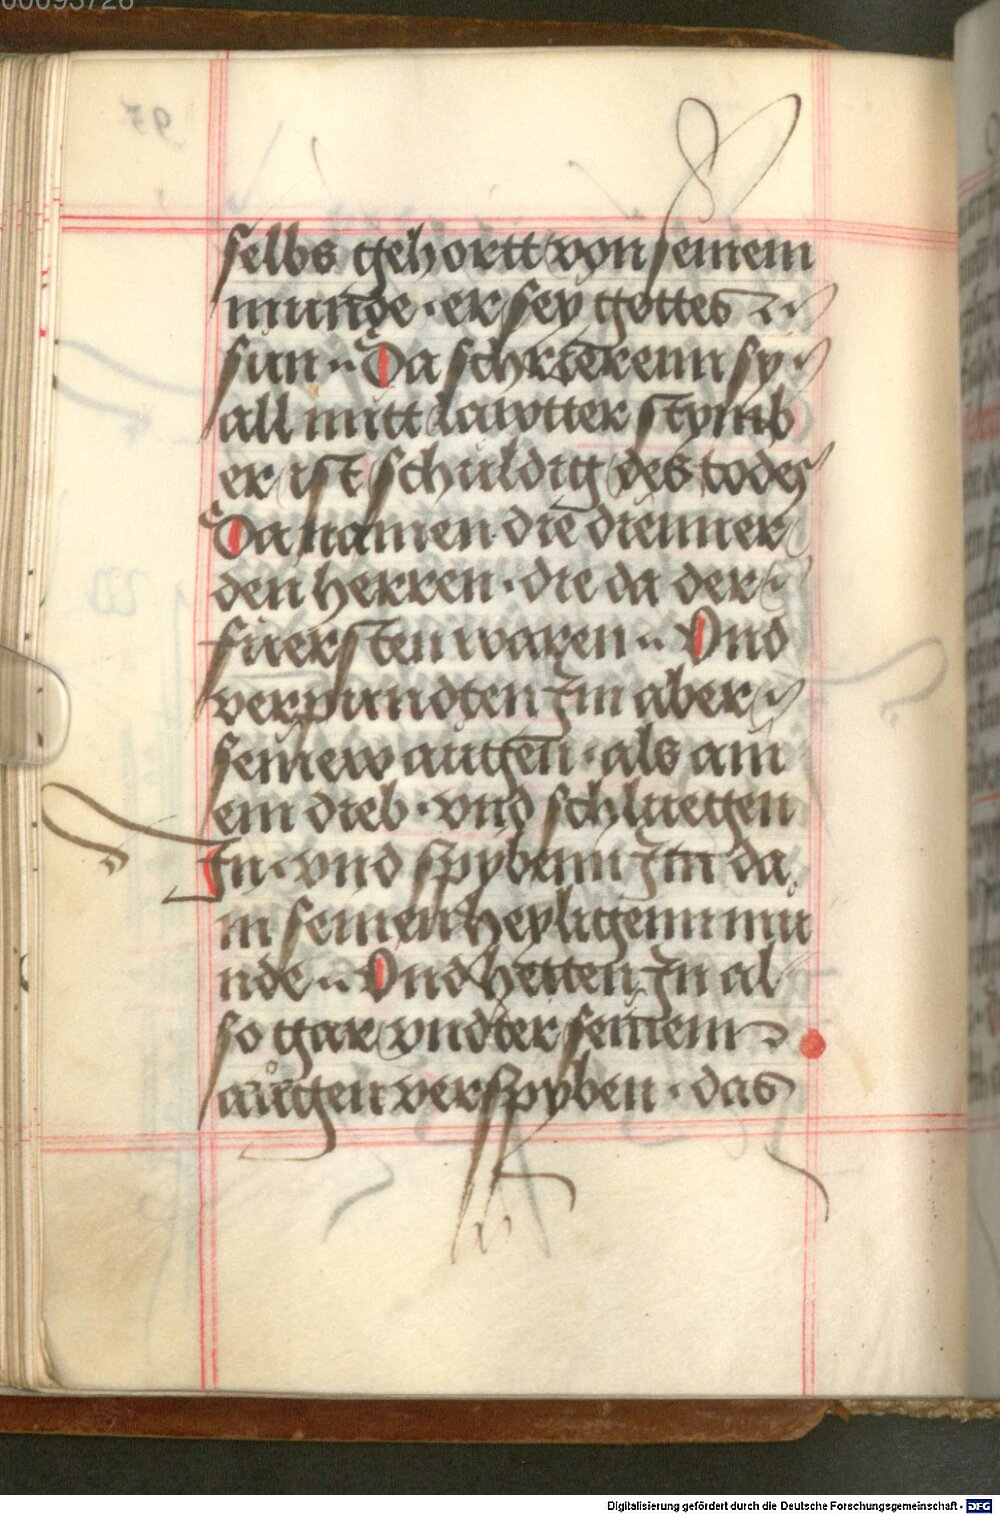 selbs gehortt von seinem
munde · er sey gottes
sun ·· Da schrierenn sy
all mitt lawtter stymb
er ist schuldig des todes
Da namen die dienner
den herren · die da der
fuersten waren ·· Vnd
verpundten Im aber
seinew augen · als am
ein dieb · vnd schluegen
In · vnd spybenn Im da
in seinen heyligenn mu
nde ·· Vnd hetten In al
so gar vndter seinem
augen verspyben · das
Digitalisierung gefördert durch die Deutsche Forschungsgemeinschaft - DFG